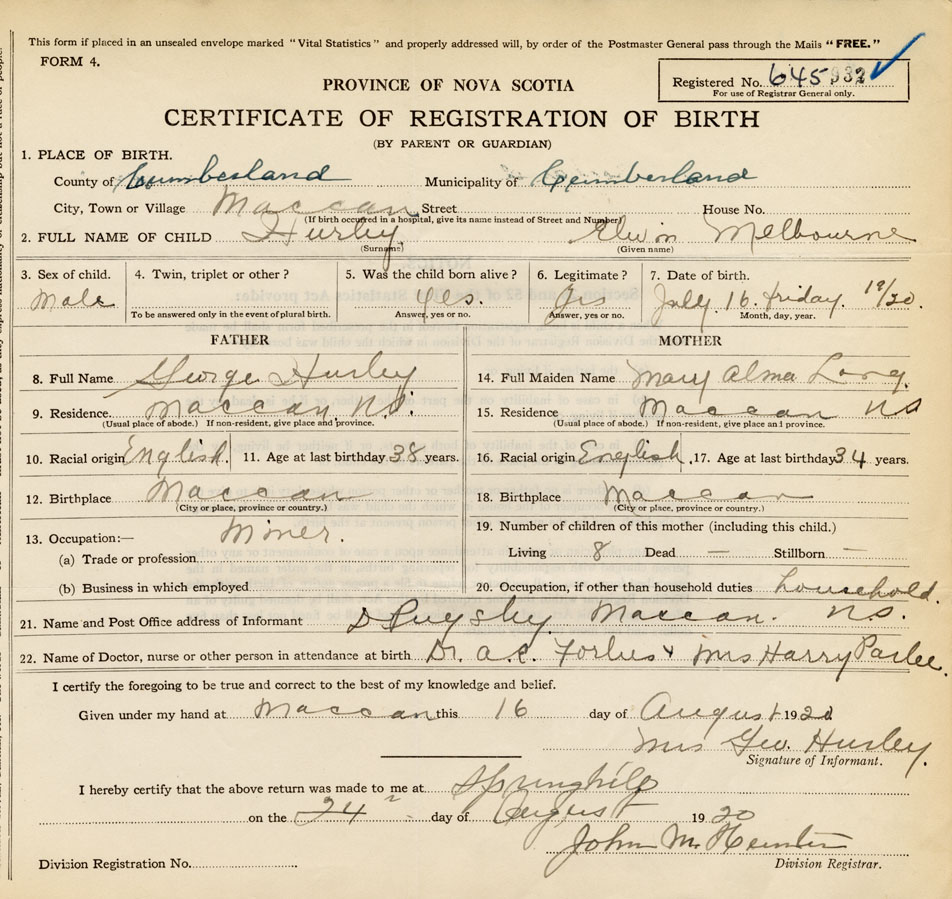 This form if placed in an unsealed envelope marked "Vital Statistics" and properly addressed will, by order of the Postmaster General pass through the Mails "FREE."
FORM 4.
Registered No. 645932
For use of Registrar General only.
PROVINCE OF NOVA SCOTIA
CERTIFICATE OF REGISTRATION OF BIRTH
(BY PARENT OR GUARDIAN)
1. PLACE OF BIRTH.
County of Cumberland Municipality of Cumberland
City, Town or Village Maccan Street House No.
(If birth occurred in a hospital, give its name instead of Street and Number)
2. FULL NAME OF CHILD Hurley Elwin Melbourne
(Surname) (Given name)
3. Sex of child. 4. Twin, triplet or other? 5. Was the child born alive? 6. Legitimate? 7. Date of birth.
Male yes. yes July 16. friday. 19/20.
To be answered only in the event of plural birth. Answer, yes or no. Answer, yes or no. Month, day, year.
FATHER MOTHER
8. Full Name George Hurley 14. Full Maiden Name Mary Alma Long.
9. Residence. Maccan NS. 15. Residence Maccan NS
(Usual place of abode.) If non-resident, give place and province. (Usual place of abode.) If non-resident, give place and province.
10. Racial origin English. 11. Age at last birthday 38 years. 16. Racial origin English. 17. Age at last birthday 34 years.
12. Birthplace Maccan 18. Birthplace Maccan
(City or place, province or country.) (City or place, province or country.)
13. Occupation:— Miner. 19. Number of children of this mother (including this child.)
(a) Trade or profession Living 8 Dead — Stillborn —
(b) Business in which employed 20. Occupation, if other than household duties household.
21. Name and Post Office address of Informant D Pugsley Maccan. N.S.
22. Name of Doctor, nurse or other person in attendance at birth Dr. A.E. Forbes & Mrs Harry Parlee.
I certify the foregoing to be true and correct to the best of my knowledge and belief.
Given under my hand at Maccan this 16 day of August 1920
Mrs Geo. Hurley.
Signature of Informant.
I hereby certify that the above return was made to me at Springhill
on the 24 day of August 1920
John M. Hunter
Division Registration No. Division Registrar.